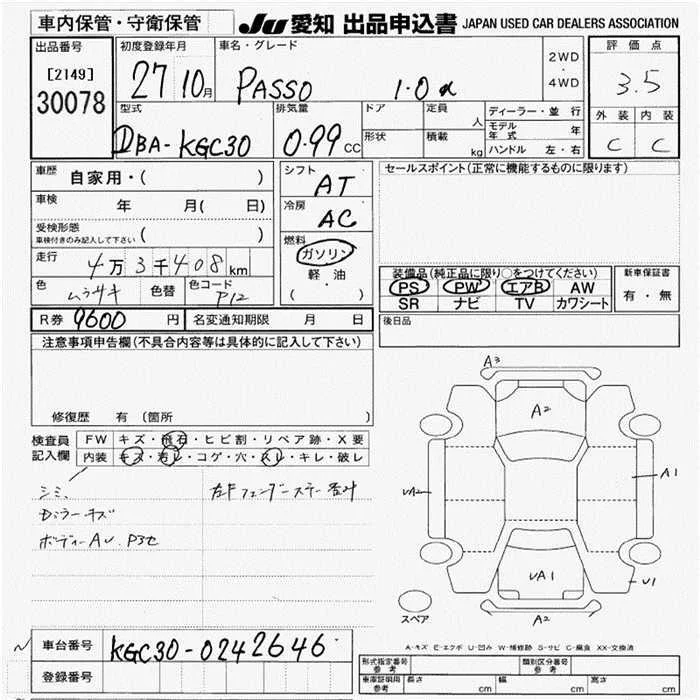 車内保管・守衛保管
JU 愛知 出品申込書 JAPAN USED CAR DEALERS ASSOCIATION
出品番号
[2149]
30078
初度登録年月
27 10月
車名・グレード
PASSO 1.0
2WD
・
4WD
評価点
3.5
外装 内装
C C
型式
DBA-KGC30
排気量
0.99 cc
ドア
形状
定員 人
積載 kg
ディーラー・並行
モデル年式 年
ハンドル 左・右
車歴 自家用・( )
車検 年 月( 日)
受検形態
車検付きのみ記入して下さい ( )
走行 4万3千408km
色 ムラサキ 色替 色コード P12
シフト
AT
冷房
AC
燃料
ガソリン
軽・油
( )
セールスポイント(正常に機能するものに限ります)
装備品(純正品に限り○をつけてください)
PS PW エアB AW
SR ナビ TV カワシート
新車保証書
有・無
R券 9600円 名変通知期限 月 日
後日品
注意事項申告欄(不具合内容等は具体的に記入して下さい)
修復歴 有(箇所 )
検査員
記入欄
FW キズ・飛石・ヒビ割・リペア跡・X要
内装 キズ・汚レ・コゲ・穴・スレ・キレ・破レ
シミ、
Dミラーキズ
ボディーAU、P3セ
左Fフェンダーステー
A3
A2
UA2
A1
UA1
U1
A2
スペア
A-キズ E-エクボ U-凹み W-補修跡 S-サビ C-腐食 XX-交換済
車台番号 KGC30-0242646
登録番号
形式指定番号
参考
類別区分番号
参考
車庫証明用
参考
長さ cm 幅 cm 高さ cm